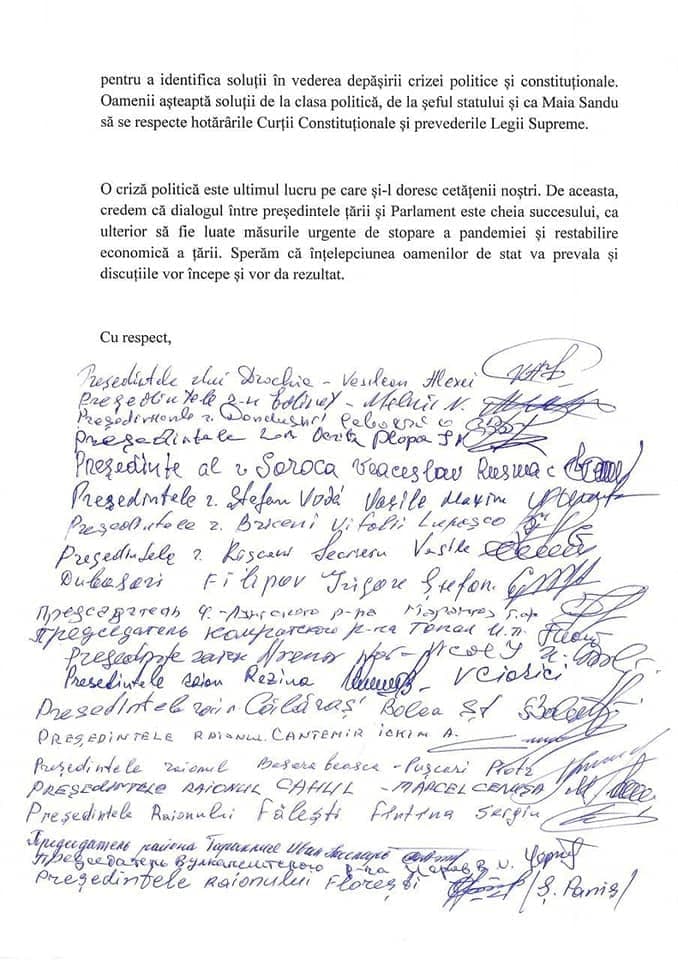 pentru a identifica soluții în vederea depășirii crizei politice și constituționale.
Oamenii așteaptă soluții de la clasa politică, de la șeful statului și ca Maia Sandu
să se respecte hotărârile Curții Constituționale și prevederile Legii Supreme.
O criză politică este ultimul lucru pe care și-l doresc cetățenii noștri. De aceasta,
credem că dialogul între președintele țării și Parlament este cheia succesului, ca
ulterior să fie luate măsurile urgente de stopare a pandemiei și restabilire
economică a țării. Sperăm că înțelepciunea oamenilor de stat va prevala și
discuțiile vor începe și vor da rezultat.
Cu respect,
Președintele Drochia - Alexei
Președintele
Președintele
Președinte al r Soroca Veaceslav Rusnac
Președintele r. Ștefan Vodă Vasile Maxim
Președintele r. Briceni Vitalii Lupașco
Președintele r. Vasile
Dubăsari Filipov Grigore Ștefan.
Председатель р-на
Председатель комратского р-на Топал И.П.
Președinte raion
Președintele raion Rezina
Președintele Călărași Bolea
PREȘEDINTELE RAIONUL CANTEMIR ICHIM A.
Președintele raionul Basarabeasca - Pușcari Piotr
PREȘEDINTELE RAIONUL CAHUL - MARCEL CENUȘA
Președintele Raionului Fălești Fîntîna Sergiu
Председатель района Тараклия Иван
Председатель Вулканештского р-на
Președintele Raionului Florești /Ș. Paniș/